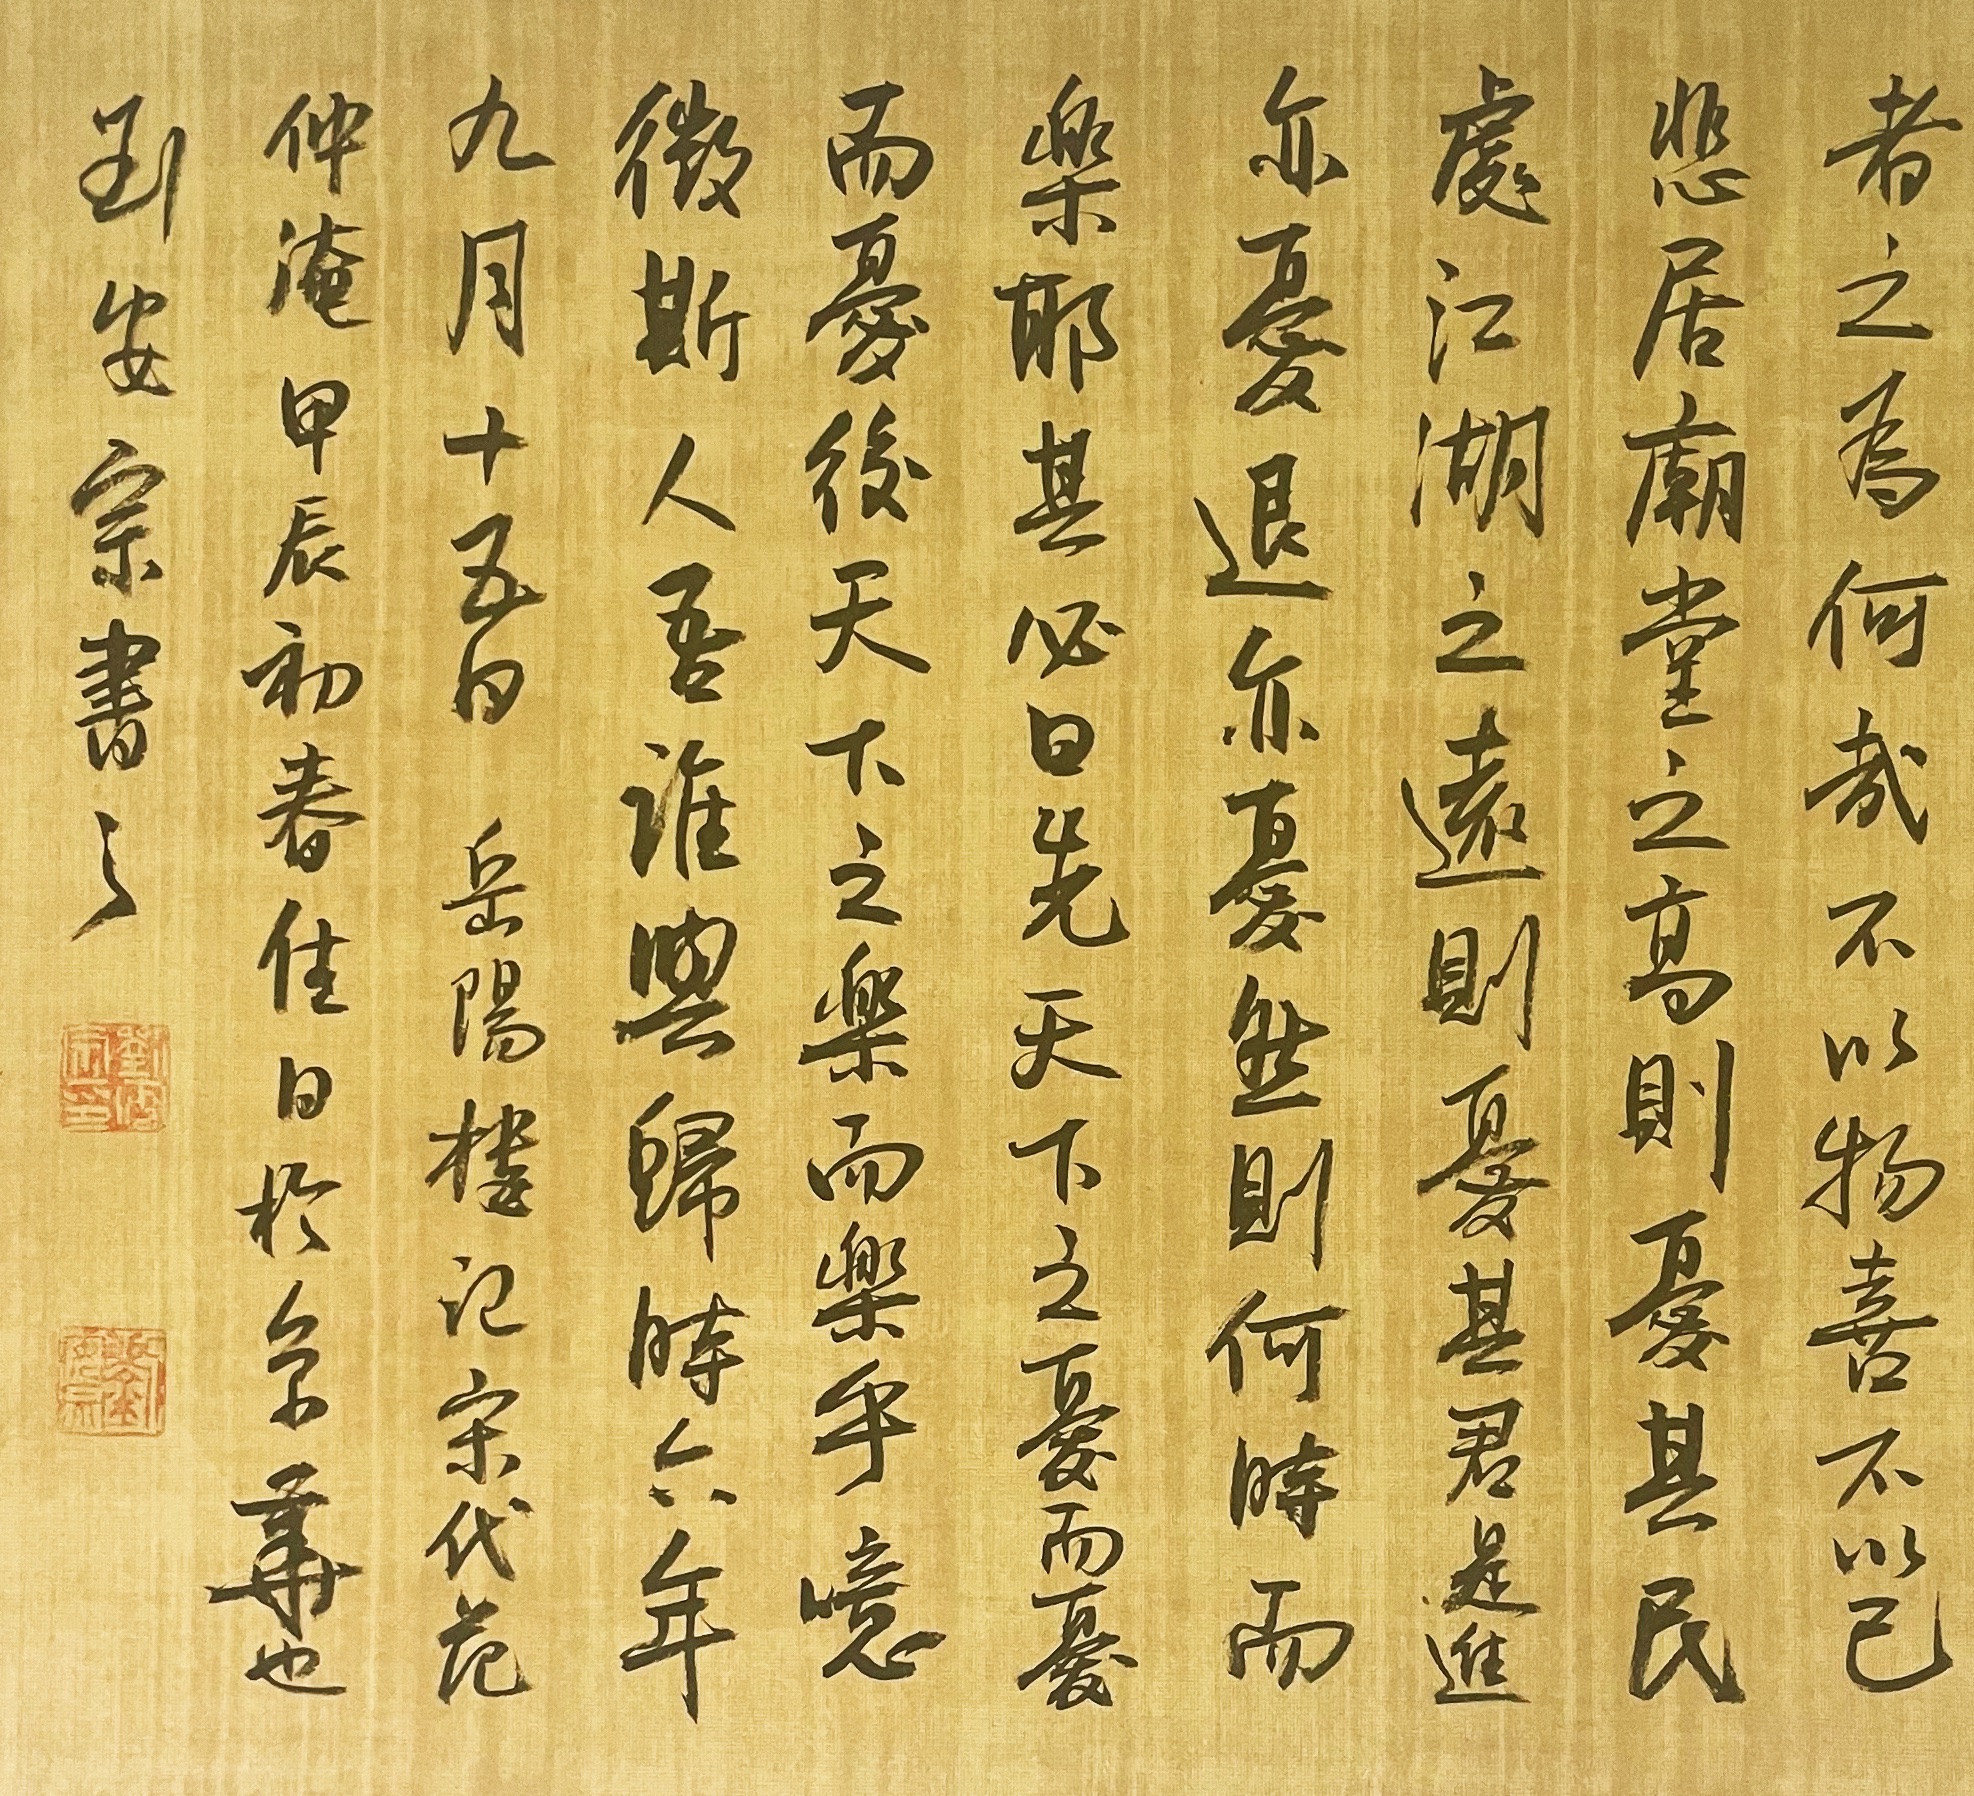 者之為何哉不以物喜不以己
悲居廟堂之高則憂其民
處江湖之遠則憂其君是進
亦憂退亦憂然則何時而
樂耶其必曰先天下之憂而憂
而憂後天下之樂而樂乎噫
微斯人吾誰與歸時六年
九月十五日 岳陽樓記宋代范
仲淹甲辰初春佳日於京華也
劉安宗書之